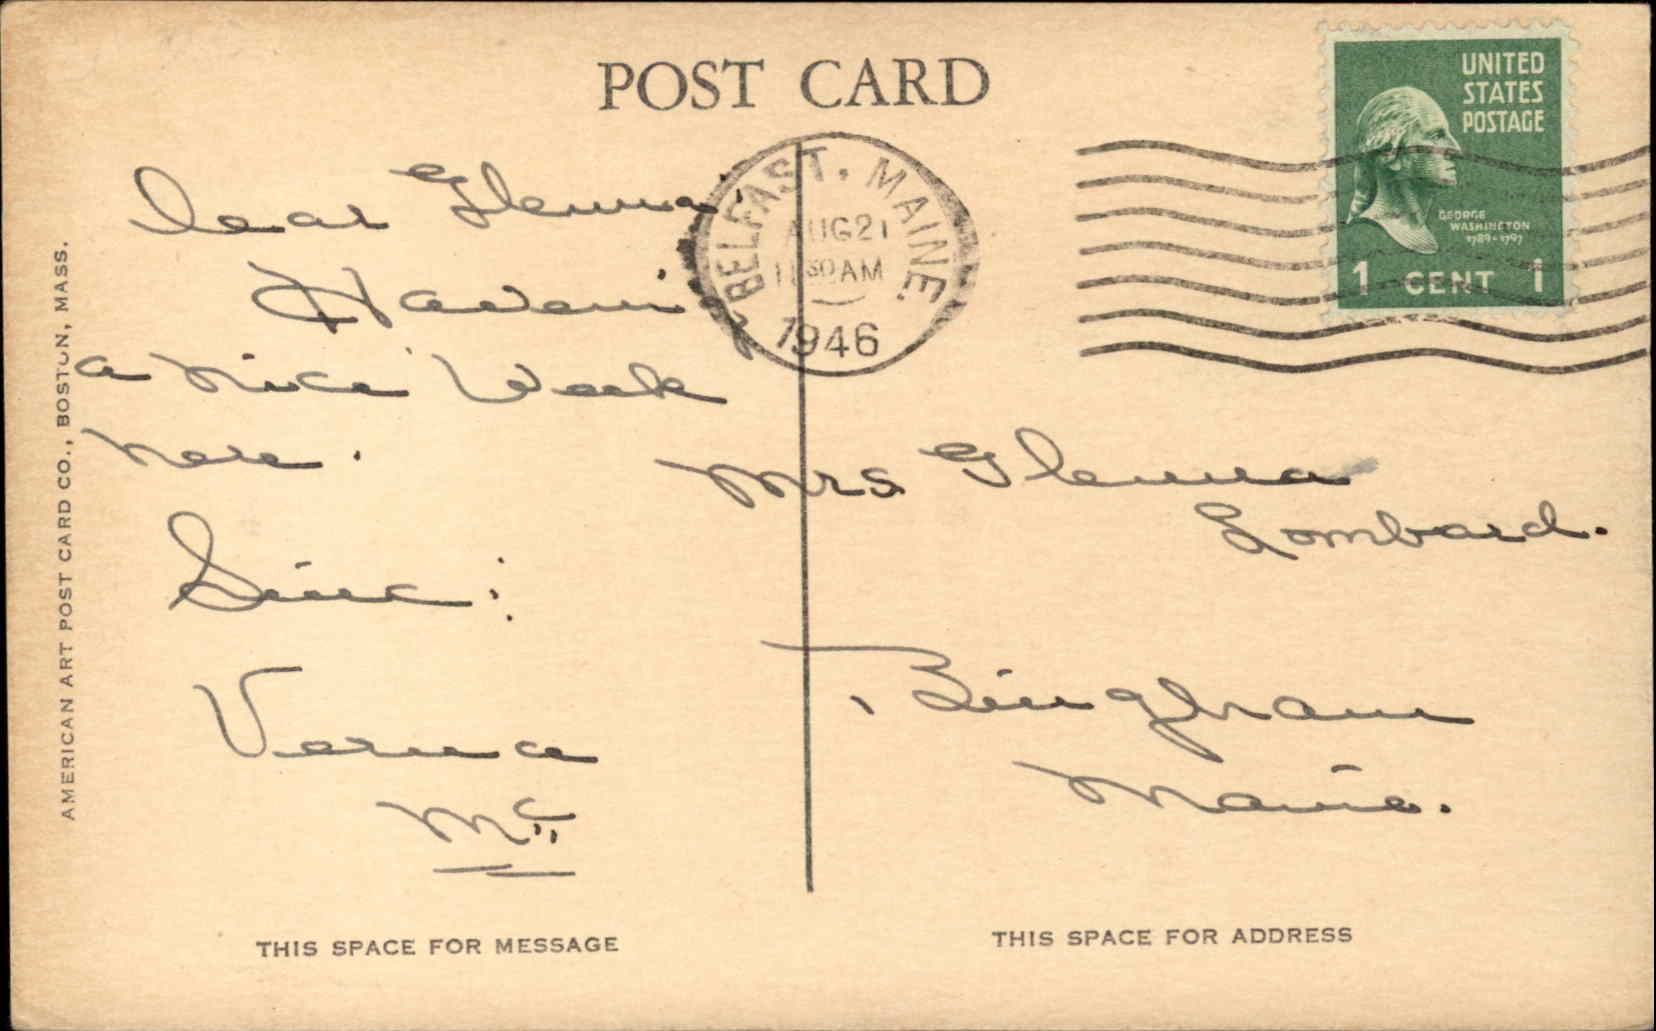 POST CARD
UNITED
STATES
POSTAGE
GEORGE
WASHINGTON
1789-1797
1 CENT 1
BELFAST, MAINE
AUG 21
11 30 AM
1946
Dear Glenna,
Haveing
a nice Week
here.
Sinc:
Verna
Mc
Mrs Glenna
Lombard.
Bingham
Maine.
AMERICAN ART POST CARD CO., BOSTON, MASS.
THIS SPACE FOR MESSAGE
THIS SPACE FOR ADDRESS